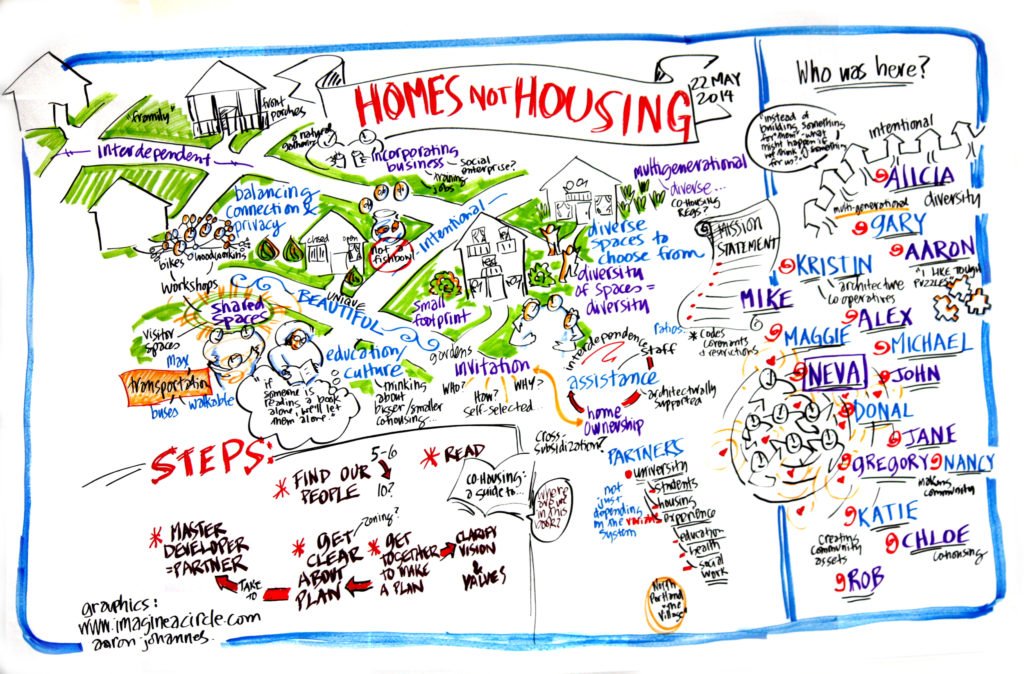 HOMES NOT HOUSING
22 MAY
2014
"framily"
front
porches
interdependent
a natural
gathering
incorporating
business
social
enterprise?
training
jobs
balancing
connection &
privacy
intentional
multigenerational
diverse...
co-housing
REGS?
closed
open
not a
fishbowl
diverse
spaces to
choose from
diversity
of spaces =
diversity
bikes
woodworking
workshops
shared
spaces
visitor
spaces
max
transportation
buses
walkable
UNIQUE
BEAUTIFUL
small
footprint
education/
culture
gardens
"if
someone is
reading a book
alone, we'll let
them alone."
thinking
about
bigger/smaller
cohousing...
invitation
WHO?
WHY?
HOW?
self-selected...
interdependence
staff
assistance
architecturally
supported
home
ownership
cross-
subsidization?
MISSION
STATEMENT
ratios...
* codes
covenants
& restrictions
STEPS:
* FIND OUR
PEOPLE
5-6
10?
* READ
CO-HOUSING:
a guide to...
where
are we
in this
book?
* MASTER
DEVELOPER
= PARTNER
TAKE
TO
zoning?
* GET
CLEAR
ABOUT
PLAN
* GET
TOGETHER
TO MAKE
A PLAN
CLARIFY
VISION
&
VALUES
PARTNERS
university
students
housing
experience
education
health
social
work
not
just
depending
on the
system
North
Portland
"the
Village"
graphics:
www.imagineacircle.com
aaron johannes
Who was here?
"instead of
building something
for "them" - what
might happen if
we think of something
for us?"
intentional
ALICIA
diversity
multi-generational
GARY
AARON
"I LIKE TOUGH
PUZZLES"
KRISTIN
architecture
cooperatives
MIKE
ALEX
MAGGIE
MICHAEL
NEVA
JOHN
DONAL
JANE
GREGORY
NANCY
making
community
KATIE
creating
community
assets
CHLOE
cohousing
ROB